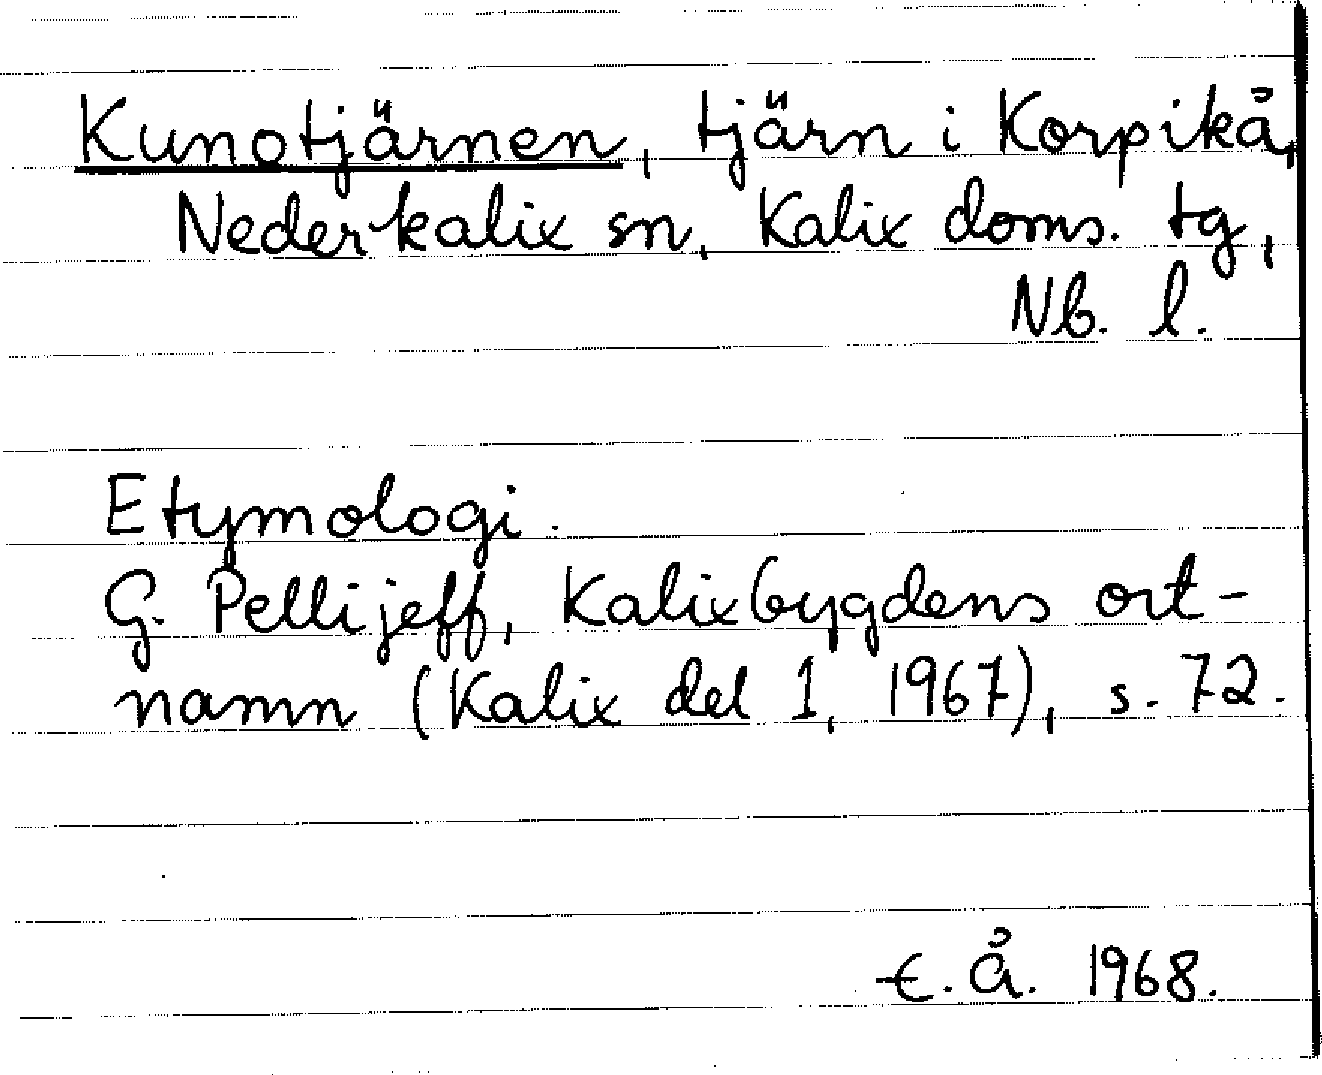 Kunotjärnen, tjärn i Korpikå,
Nederkalix sn, Kalix doms. tg,
Nb. l.
Etymologi.
G. Pellijeff, Kalixbygdens ort-
namn (Kalix del 1, 1967), s. 72.
E. Å. 1968.